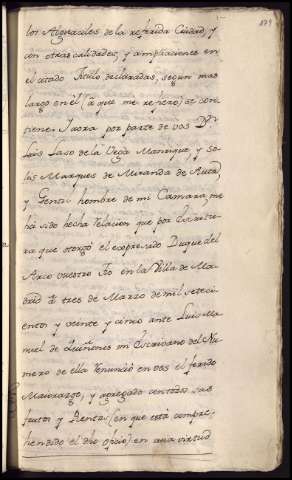 los Alguaciles de la referida Ciudad, y
con otras calidades, y ampliaciones en
el citado Titulo declaradas, segun mas
largo en él (à que me refiero) se con
tiene. Y aora por parte de vos Dn.
Luis Laso de la Vega Manrique y So
lis Marques de Miranda de Auta
y Gentil hombre de mi Camara, me
há sido hecha relacion que por Escritu
ra que otorgó el expresado Duque del
Arco vuestro Tio en la Villa de Ma
drid à tres de Marzo de mil seteci
entos y veinte y cinco ante Luis Ma
nuel de Quiñones mi Escrivano del Nu
mero de ella renunció en vos el referido
Maiorazgo, y agregado con todos sus
frutos y Rentas (en que está compre
hendido el dho oficio) en cuia virtud